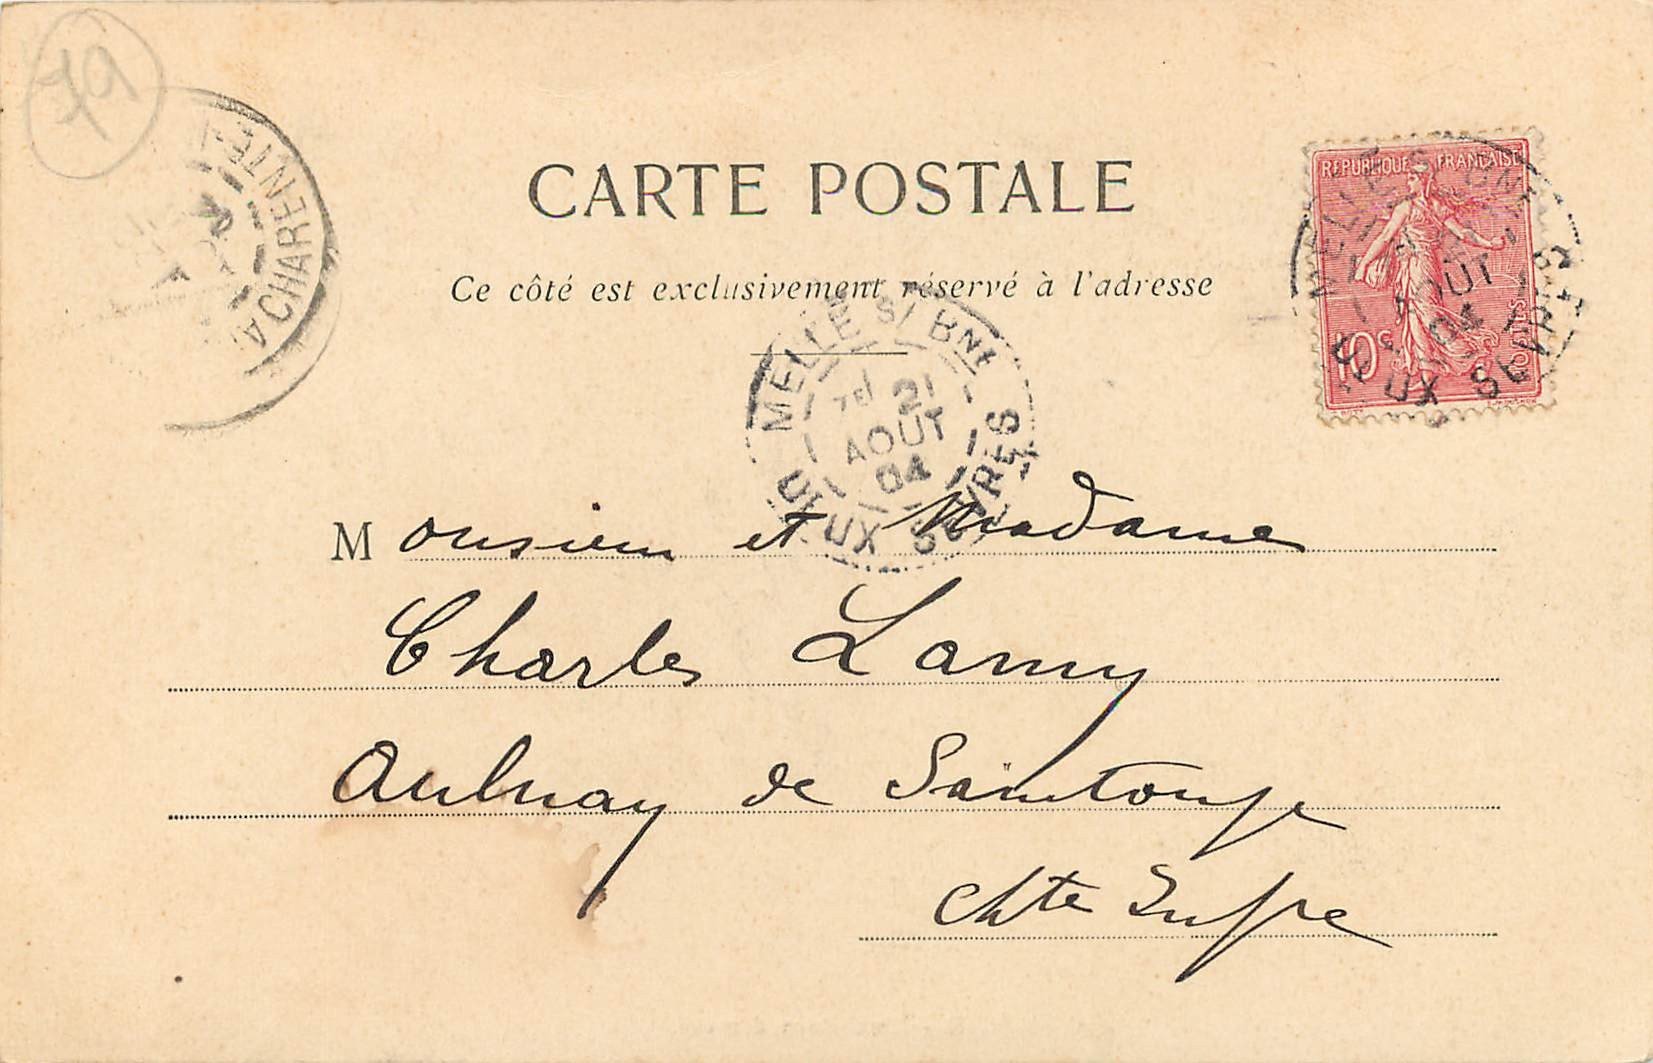 79
CHARENTE
RÉPUBLIQUE FRANÇAISE
10c
POSTES
MELLE
AOUT
04
SEVRES
CARTE POSTALE
Ce côté est exclusivement réservé à l'adresse
MELLE S/ BNE
21
AOUT
04
DEUX SEVRES
Monsieur et Madame
Charles Lamy
Aulnay de Saintonge
Chte Infre